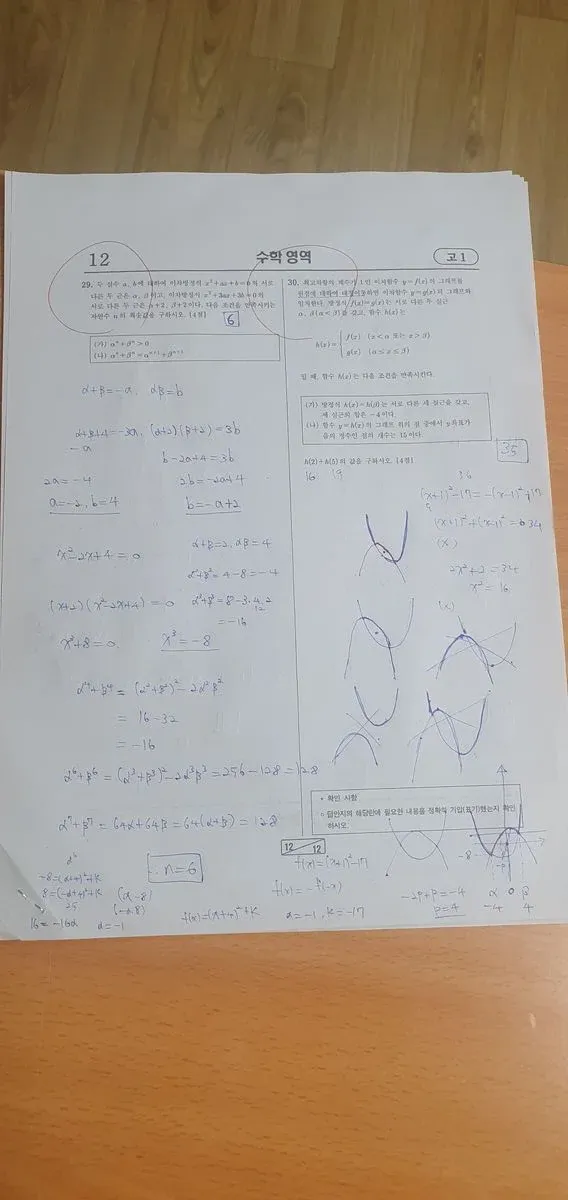 12
수학 영역
고 1
29. 두 실수 a, b에 대하여 이차방정식 x²+ax+b=0의 서로
다른 두 근은 α, β이고, 이차방정식 x²+3ax+3b=0의
서로 다른 두 근은 α+2, β+2이다. 다음 조건을 만족시키는
자연수 n의 최솟값을 구하시오. [4점]
6
(가) αⁿ+βⁿ>0
(나) αⁿ+βⁿ=αⁿ⁺¹+βⁿ⁺¹
α+β=-a, αβ=b
α+β+4=-3a, (α+2)(β+2)=3b
-a
b-2a+4=3b
2a=-4
2b=-2a+4
a=-2, b=4
b=-a+2
x²-2x+4=0
α+β=2, αβ=4
α²+β²=4-8=-4
(x+2)(x²-2x+4)=0
α³+β³=8-3·4·2
12
=-16
x³+8=0
x³=-8
α⁴+β⁴=(α²+β²)²-2α²β²
=16-32
=-16
α⁶+β⁶=(α³+β³)²-2α³β³=256-128=128
α⁷+β⁷=64α+64β=64(α+β)=128
∴ n=6
-8=(α+4)²+k
8=(-α+4)²+k
(α,-8)
16=-16α
α=-1
30. 최고차항의 계수가 1인 이차함수 y=f(x)의 그래프를
원점에 대하여 대칭이동하면 이차함수 y=g(x)의 그래프와
일치한다. 방정식 f(x)=g(x)는 서로 다른 두 실근
α, β(α<β)를 갖고, 함수 h(x)는
h(x)={ f(x) (x<α 또는 x>β)
g(x) (α≤x≤β)
일 때, 함수 h(x)는 다음 조건을 만족시킨다.
(가) 방정식 h(x)=h(β)는 서로 다른 세 실근을 갖고,
세 실근의 합은 -4이다.
(나) 함수 y=h(x)의 그래프 위의 점 중에서 y좌표가
음의 정수인 점의 개수는 15이다.
h(2)+h(5)의 값을 구하시오. [4점]
35
16 19
36
(x+1)²-17=-(x-1)²+17
(x+1)²+(x-1)²=34
(x)
2x²+2=34
x²=16
(x)
* 확인 사항
○ 답안지의 해당란에 필요한 내용을 정확히 기입(표기)했는지 확인
하시오.
12
12
f(x)=(x+1)²-17
f(x)=-f(-x)
f(x)=(x+4)²+k
α=-1, k=-17
-2p+p=-4
p=4
-8
α 0 β
-4 4